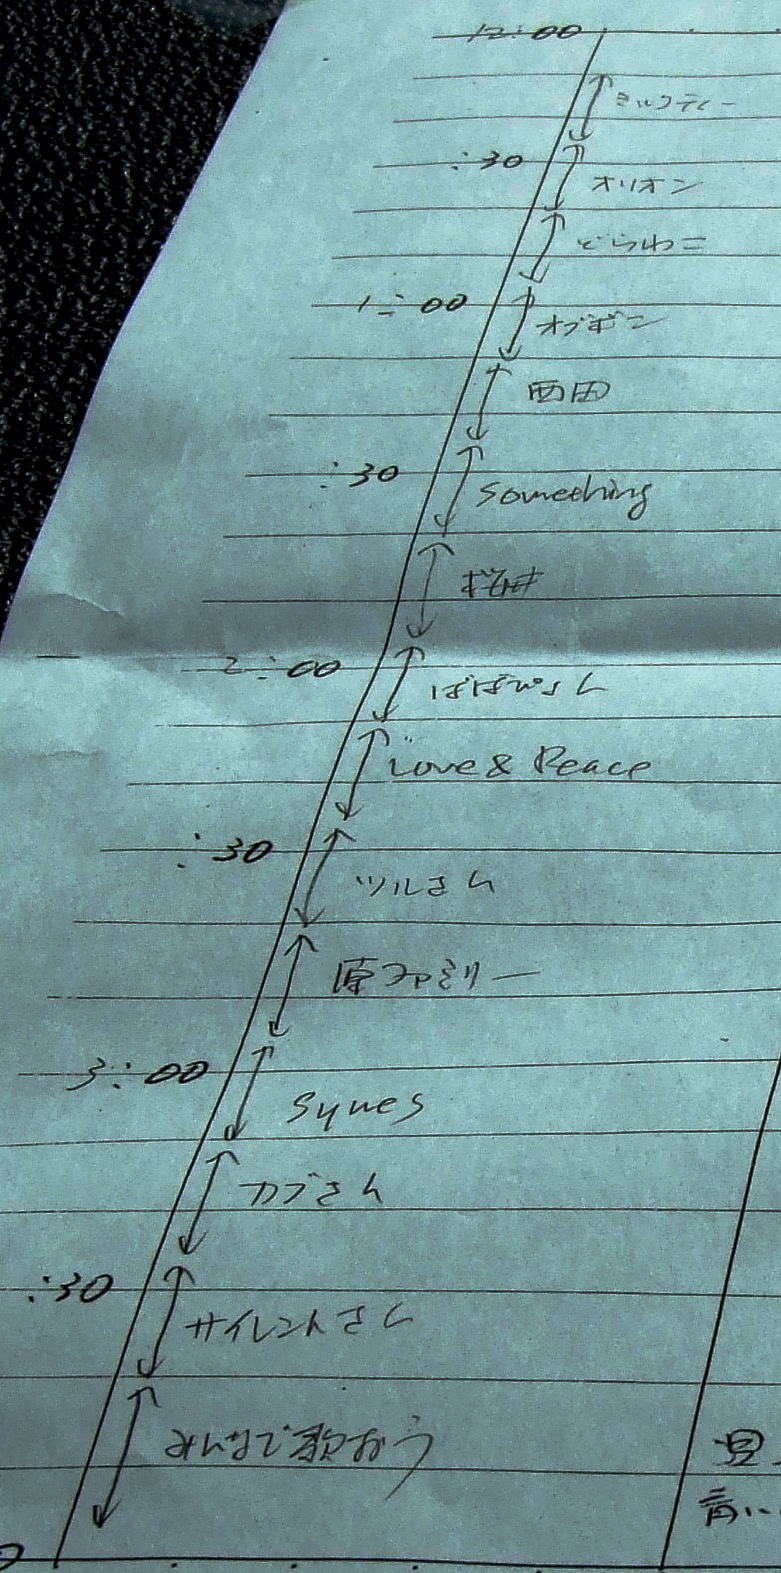 12:00
ミルクティー
:30
オリオン
どらねこ
1:00
オブギン
西田
:30
Something
2:00
ばばぴょん
Love & Peace
:30
ツルさん
原ファミリー
3:00
Synes
カブさん
:30
サイレントさん
みんなで歌おう